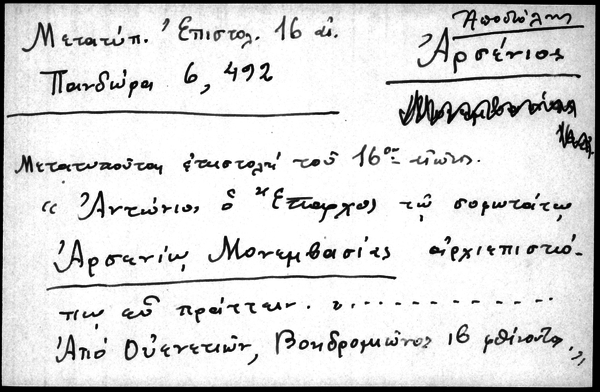 Μετατύπ. Ἐπιστολ. 16 αἰ.
Πανδώρα 6, 492
Ἀποστόλης
Ἀρσένιος
Μετατυποῦται ἐπιστολή τοῦ 16ου αἰῶνος.
“ Ἀντώνιος ὁ Ἔπαρχος τῷ σοφωτάτῳ
Ἀρσενίῳ Μονεμβασίας ἀρχιεπισκό-
πῳ εὖ πράττειν. . . . . . . . . . . . . . .
Ἀπό Οὐενετιῶν, Βοηδρομιῶνος 16 φθίνοντος."